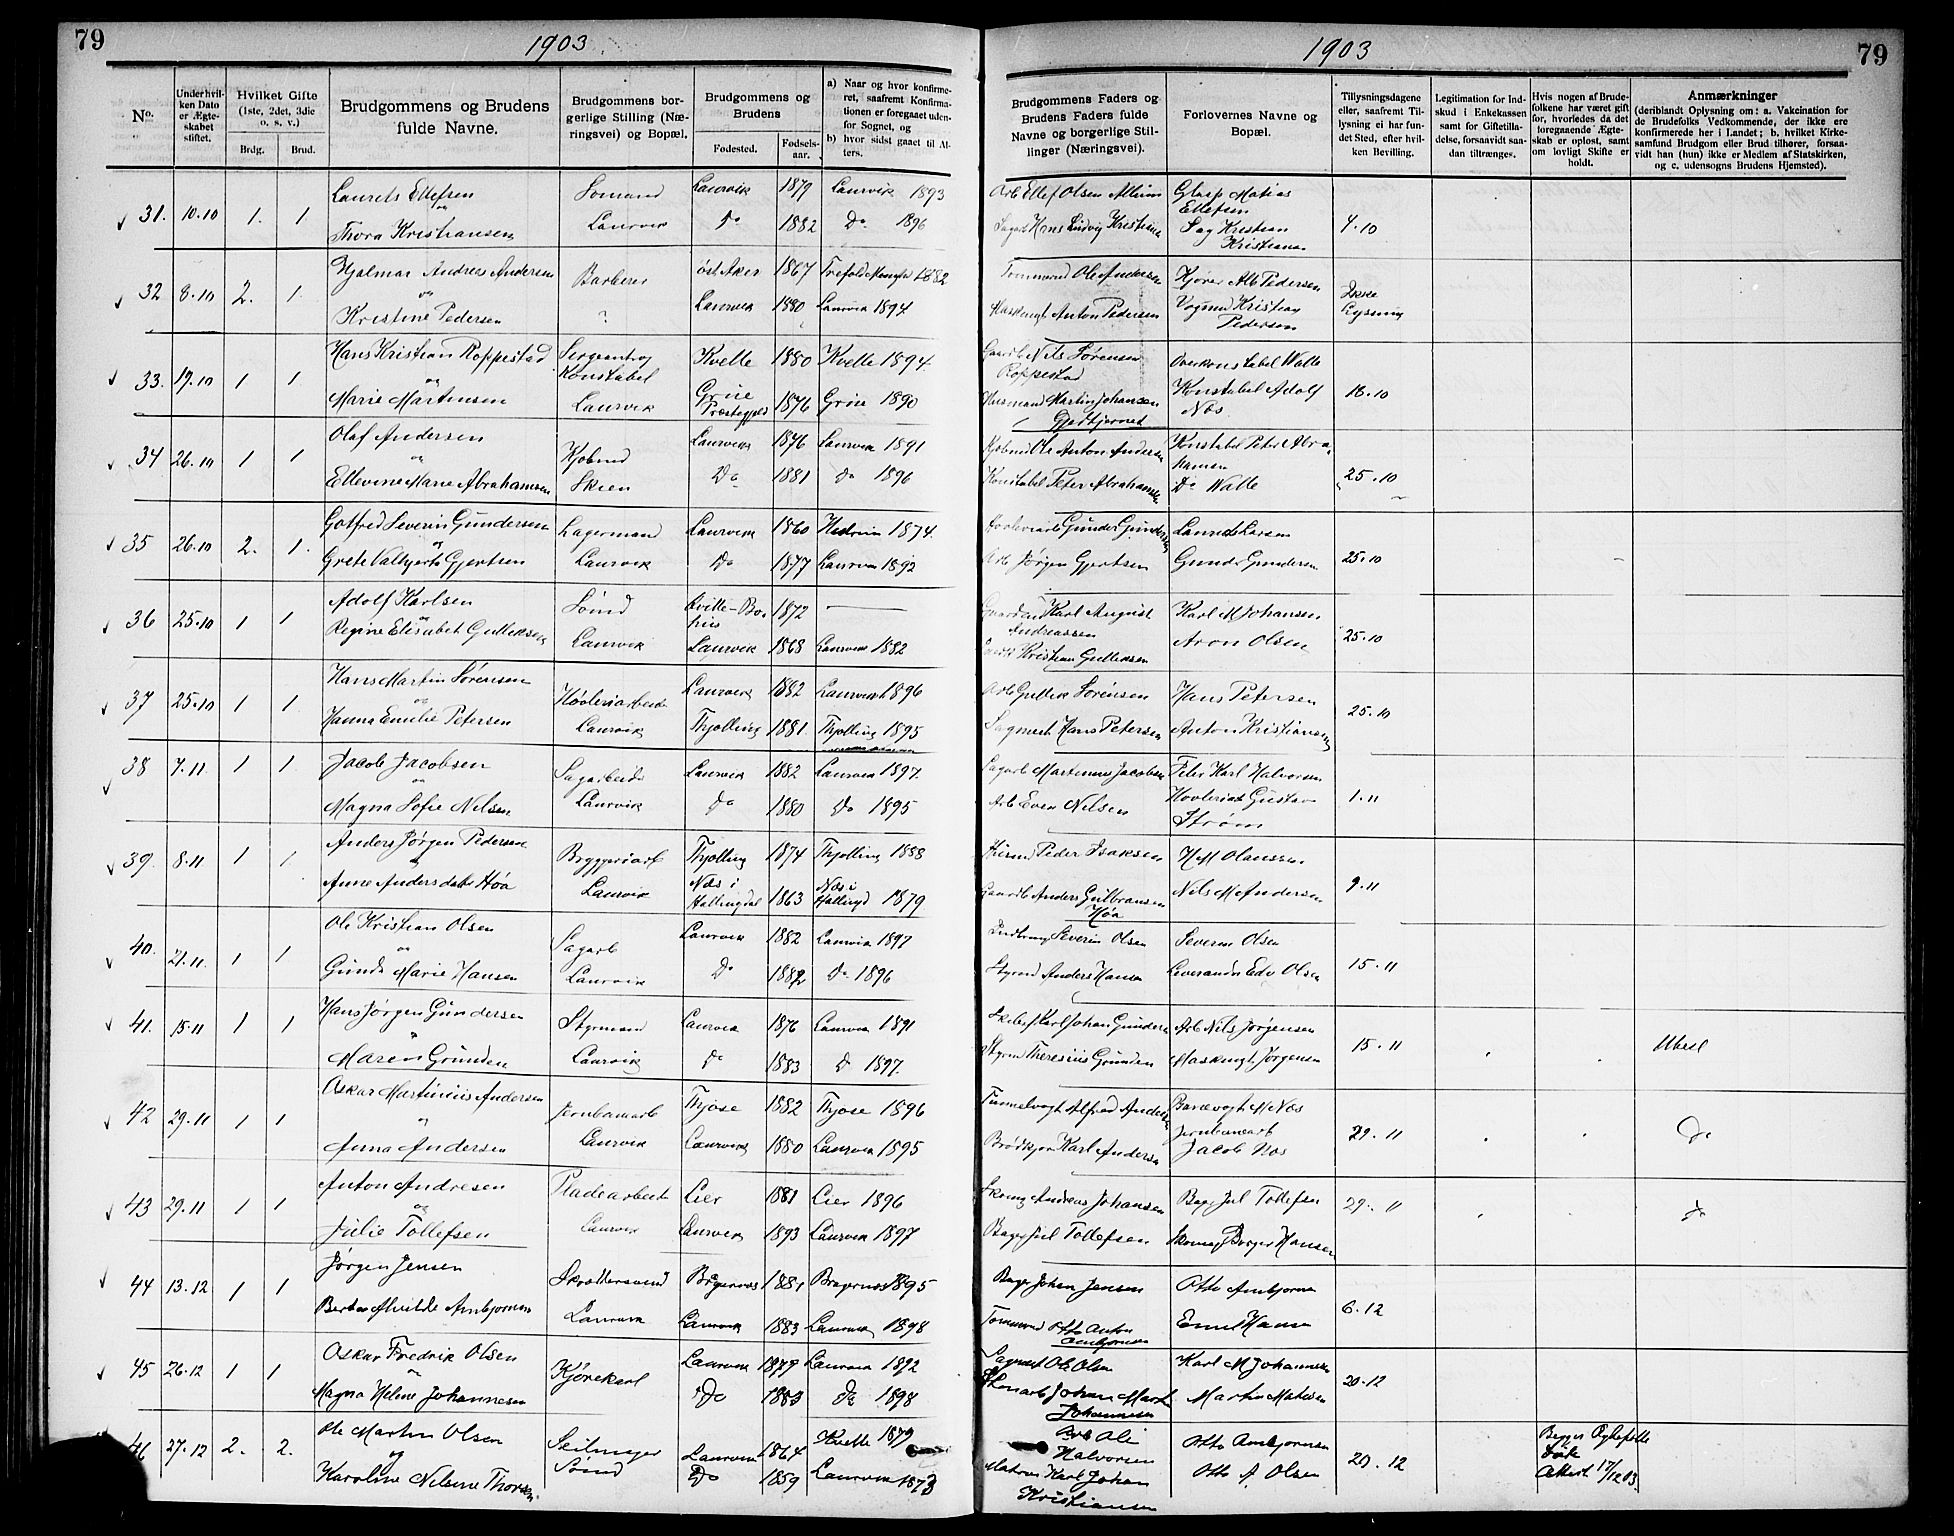 79
1903
No.
Underhvil-
ken Dato
er Ægte-
skabet
stiftet.
Hvilket Gifte
(1ste, 2det, 3die
o. s. v.)
Brdg.
Brud.
Brudgommens og Brudens
fulde Navne.
Brudgommens bor-
gerlige Stilling (Næ-
ringsvei) og Bopæl.
Brudgommens og
Brudens
Fødested.
Fødsels-
aar.
a) Naar og hvor konfirme-
ret, saafremt Konfirma-
tionen er foregaaet uden-
for Sognet, og
b) hvor sidst gaaet til Al-
ters.
31. 10.10 1. 1 Laurits Ellefsen Sømand Laurvik 1879 Laurvik 1893
og
Thora Kristiansen Laurvik Do 1882 Do 1896
32 8.10 2. 1. Hjalmar Andreas Andersen Barberer Øst Aker 1867 1882
og
Kristine Pedersen ? Laurvik 1880 Laurvik 1894
33. 19.10 1 1 Hans Kristian Roppestad Sergeant og Kvelle 1880 Kvelle 1894
og Konstabel
Marie Martinsen Laurvik Grue Præstegjeld 1876 Grue 1890
34 26.10 1 1 Olaf Andersen Kjøbmd Laurvik 1876 Laurvik 1891
og
Ellevine Marie Abrahamsen Skien Do 1881 Do 1896
35 26.10 2. 1. Gotfred Severin Gundersen Lagermand Laurvik 1860 Hedrum 1874.
og
Grete Valborg Gjertsen Laurvik Do 1877 Laurvik 1892
36 25.10 1 1 Adolf Karlsen Sømd Kville-Bo-
hus 1872 —
og
Regine Elisabet Gulliksen Laurvik Laurvik 1868 Laurvik 1882
37 25.10 1 1 Hans Martin Sørensen Høvleriarbeid Laurvik 1882 Laurvik 1896
og
Hanna Emilie Petersen Laurvik Thjølling 1881. Thjølling 1895
38 7.11 1 1 Jacob Jacobsen Sagarbeid Laurvik 1882 Laurvik 1897.
og
Magna Sofie Nilsen Laurvik Do 1880 Do 1895
39. 8.11 1 1 Anders Jørgen Pedersen Bryggeriarb Thjølling 1874 Thjølling 1888
og
Anne Andersdatter Høa Laurvik Næs i
Hallingdal 1863 Næs i
Hallingd 1879
40. 21.11. 1 1 Ole Kristian Olsen Sagarb Laurvik 1882 Laurvik 1897
og
Gunda Marie Hansen Laurvik Do 1882 Do 1896
41. 15.11 1 1 Hans Jørgen Gundersen Styrmand Laurvik 1876 Laurvik 1891
og
Maren Grunden Laurvik Do 1883 Do 1897.
42 29.11 1 1 Oskar Martinius Andersen Jernbanearb Thjøse 1882 Thjøse 1896
og
Anna Andersen Laurvik Laurvik 1880 Laurvik 1895
43 29.11 1 1 Anton Andresen Pladearbeid Lier 1881 Lier 1896
og
Julie Tollefsen Laurvik Laurvik 1893 Laurvik 1897
44 13.12 1 1 Jørgen Jensen Skræddersvend Bragernæs 1881 Bragernæs 1895
Alvilde Arnbjørnsen Laurvik Laurvik 1883 Laurvik 1898
45 26.12 1 1 Oskar Fredrik Olsen Kjørekarl Laurvik 1877 Laurvik 1892
og
Magna Helene Johannesen Do 1883 Do 1898
46 27.12 2. 2. Ole Martin Olsen Seilmager Laurvik 1864 Kvelle 1879
og Sømd
Karoline Nilsine Thorsen Do 1859 Laurvik 1873
1903
79
Brudgommens Faders og
Brudens Faders fulde
Navne og borgerlige Stil-
linger (Næringsvei).
Forlovernes Navne og
Bopæl.
Tillysningsdagene
eller, saafremt Til-
lysning ei har fun-
det Sted, efter hvil-
ken Bevilling.
Legitimation for Ind-
skud i Enkekassen
samt for Giftetilla-
delse, forsaavidt saa-
dan tiltrænges.
Hvis nogen af Brude-
folkene har været gift
før, hvorledes da det
foregaaende Ægte-
skab er opløst, samt
om lovligt Skifte er
holdt.
Anmærkninger
(deriblandt Oplysning om: a. Vakcination for
de Brudefolks Vedkommende, der ikke ere
konfirmerede her i Landet; b. hvilket Kirke-
samfund Brudgom eller Brud tilhører, forsaa-
vidt han (hun) ikke er Medlem af Statskirken,
og c. udensogns Brudens Hjemsted).
Arb Ellef Olsen Glasp Matias
Ellefsen
Sagarb Hans Ludvig Kristiansen Sag Kristian
Kristiansen 4.10
Tømmermd Ole Andersen Kjører Alb Pedersen Ikke
Maskingt Anton Pedersen Vognmd Kristian Lysning
Pedersen
Gaardb Nils Sørensen Overkonstabel Walle
Roppestad Konstabel Adolf 18.10
Husmand Martin Johansen Næs
Gjedtjernet
Kjøbmd Ole Anton Andersen Konstabel Peter Abra-
hamsen
Konstabel Peter Abrahamsen Do Walle 25.10
Høvleriarb Gunder Gundersen Laurits Larsen
Arb Jørgen Gjertsen Gunder Gundersen 25.10
Karl August Karl M Johansen
Andreassen Aron Olsen 25.10
Kristian Gulliksen
Arb Gullik Sørensen Hans Petersen 25.10
Sagmest Hans Petersen Anton Kristiansen
Sagarb Martinus Jacobsen Peter Karl Halvorsen
Arb Even Nilsen Høvleriarb Gustav 1.11
Strøm
Husmd Peder Isaksen H M Olaussen
Gaardb Anders Gulbransen Nils M Andersen 9.11
Høa
Severin Olsen Severin Olsen
Styrmd Anders Hansen Leverandør Edv Olsen 15.11
Karl Johan Gundersen Arb Nils Jørgensen
Styrm Theresius Grunden Maskingt Jørgensen 15.11
Tunnelvogt Alfred Andersen Banevogt M Næs
Brødkjører Karl Andersen Jernbanearb 29.11 Do
Jacob Næs
Skomg Andreas Johansen Bager Jul Tollefsen 29.11 Do
Bager Jul Tollefsen Skomag Borger Hansen
Bager Johan Jensen Otto Arnbjørnsen
Tømmermd Otto Anton Hansen 6.12
Arnbjørnsen
Sagmest Ole Olsen Karl M Johannesen
Johan Martin Martin Mathisen 20.12
Johannesen
Arb Ole Otto Arnbjørnsen Begges Ægtefælle
Halvorsen døde
Matros Karl Johan Otto A. Olsen 20.12 Attest 17/12 03
Kristiansen